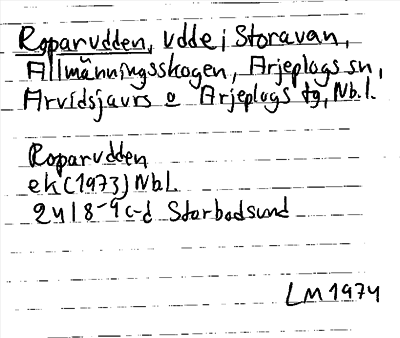 Roparudden, udde i Storavan,
Allmänningsskogen, Arjeplogs sn,
Arvidsjaurs o Arjeplogs tg, Nb. l.
Roparudden
ek (1973) Nbl.
24I 8-9 c-d Storbodsund
LM 1974